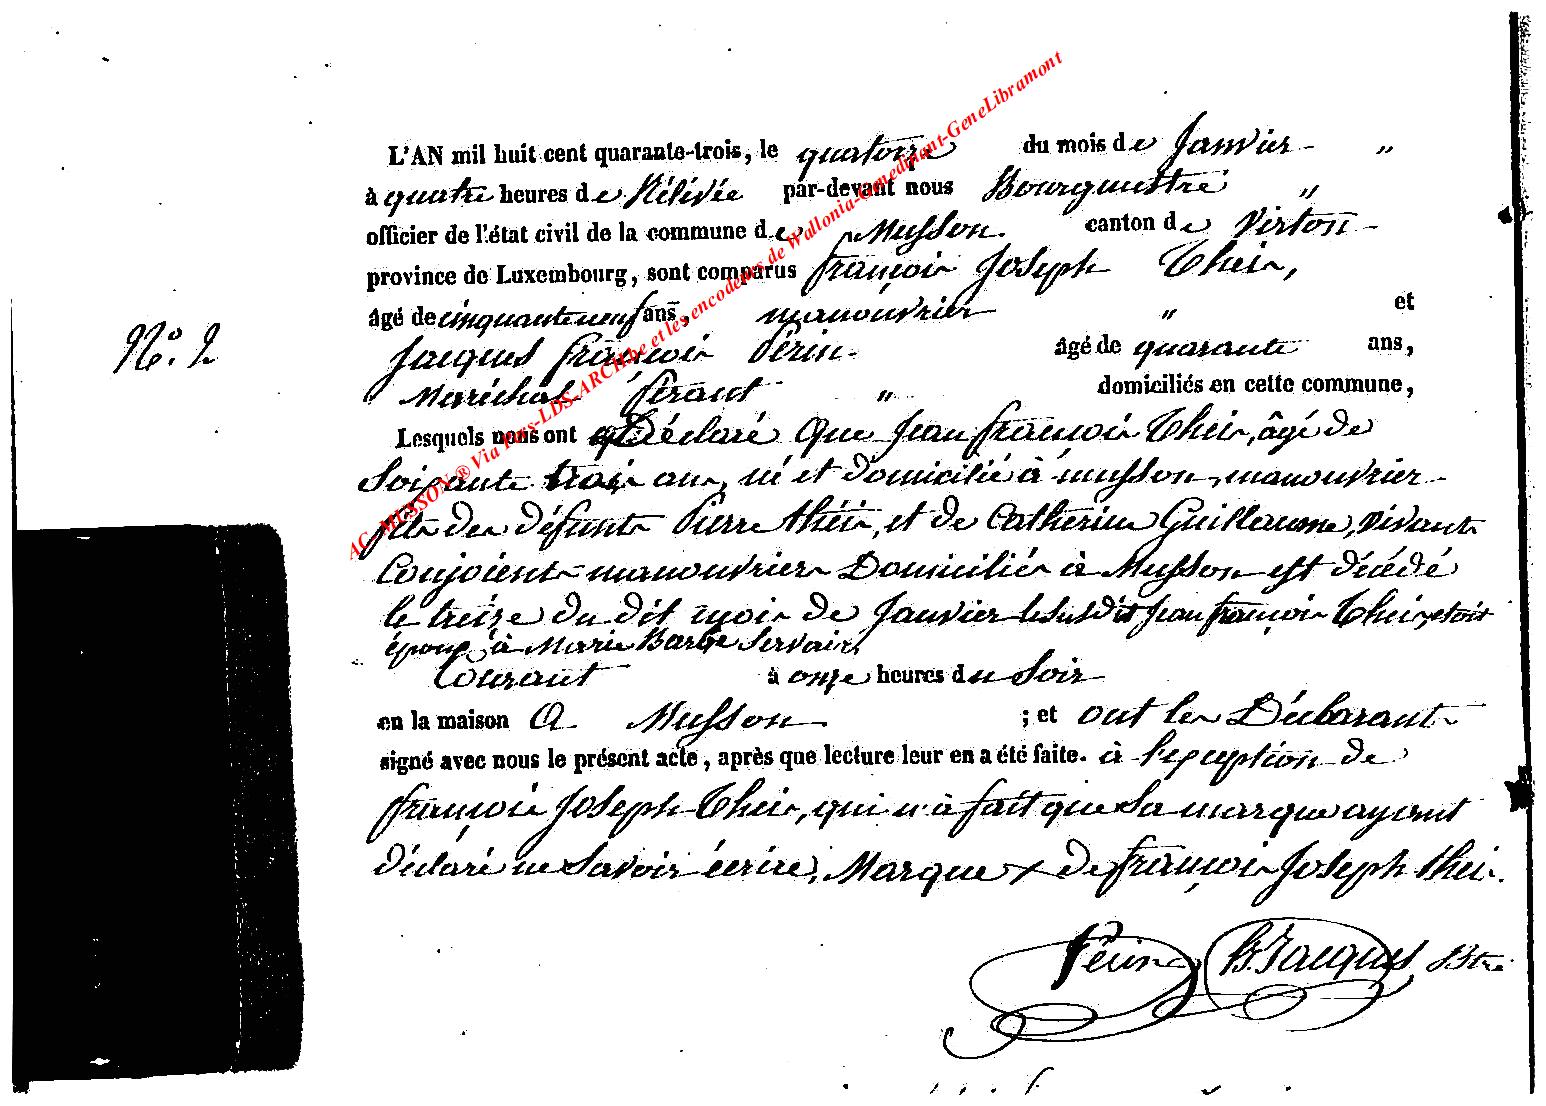 L'AN mil huit cent quarante-trois, le quatorze du mois de Janvier - "
à quatre heures de Rélévée par-devant nous Bourgmestre "
officier de l'état civil de la commune de Musson. canton de Virton -
province de Luxembourg, sont comparus françois Joseph Theis,
âgé de cinquante neuf ans, manouvrier " et
N.o 2
Jacques françois Périn. âgé de quarante ans,
Maréchal ferant " domiciliés en cette commune,
Lesquels nous ont Déclaré Que Jean françois Theis, âgé de
Soixante trois ans, né et domicilié à musson, manouvrier -
fils des défunts Pierre théis, et de Catherine Guillaume, vivants
Conjoients manouvriers Domiciliés à Musson est décédé
le treize du dit mois de Janvier le susdit Jean françois Theis, etoit
époux à Marie Barbe Servais,
Courant à onze heures du Soir
en la maison A Musson ; et ont les Déclarants
signé avec nous le présent acte, après que lecture leur en a été faite. à l'exception de
françois Joseph Theis, qui n'à fait que Sa marque ayant
déclaré ne Savoir écrire, Marque x de françois Joseph theis.
Périn B. Jacques Btre
AC-MUSSON® Via Pays-LDS-ARCH.be et les encodeurs de Wallonia-Genedinant-GeneLibramont